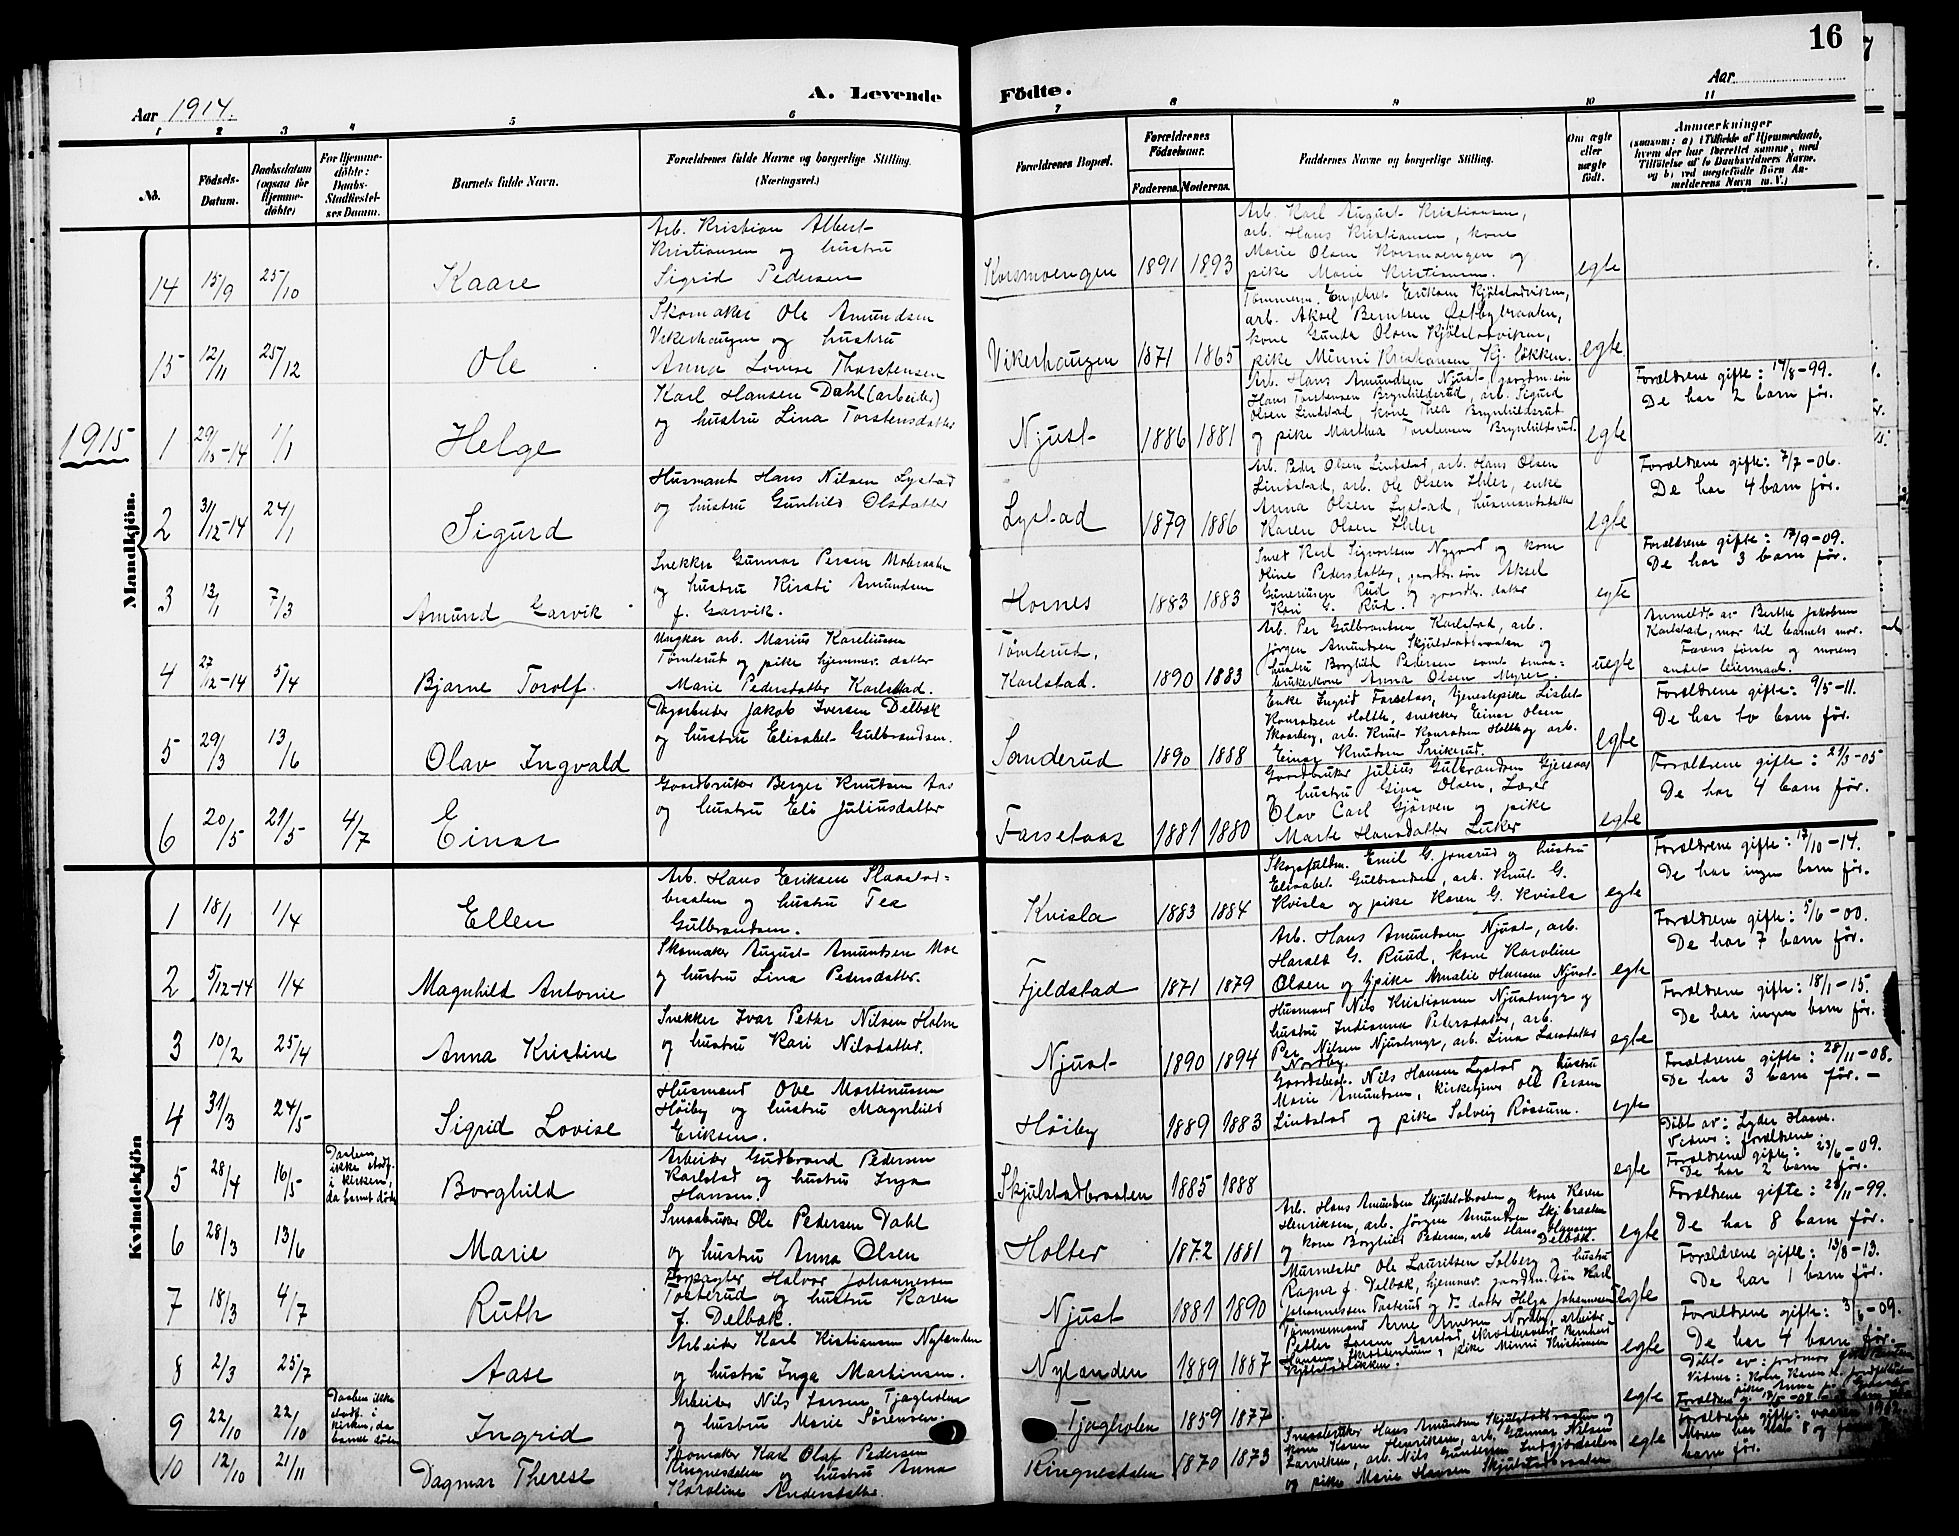 16
Aar 1914.
A. Levende
Födte.
Aar
1 2 3 4 5 6 7 8 9 10 11
No.
Födsels-
Datum.
Daabsdatum
(ogsaa for
Hjemme-
döbte)
For Hjemme-
döbte:
Daabs-
Stadfæstel-
ses Datum.
Barnets fulde Navn.
Forældrenes fulde Navne og borgerlige Stilling.
(Næringsvei.)
Forældrenes Bopæl.
Forældrenes
Födselsaar.
Faderens.
Moderens.
Faddernes Navne og borgerlige Stilling.
Om ægte
eller
uægte
födt.
Anmærkninger
(saasom: a) i Tilfælde af Hjemmedaab,
hvem der har forrettet samme, med
Tilföielse af to Daabsvidners Navne,
og b) ved uægtefödte Börn An-
melderens Navn m. V.)
Mandkjön.
14 15/9 25/10 Kaare
Arb. Kristian Albert
Kristiansen og hustru
Sigrid Pedersen
Korsmoengen 1891 1893
Arb. Karl August Kristiansen,
arb. Hans Kristiansen, kone
Marie Olsen Korsmoengen og
pike Marie Kristiansen.
egte
15 12/11 25/12 Ole
Skomaker Ole Amundsen
Vikerhaugen og hustru
Anna Lovise Thorstensen
Vikerhaugen 1871 1865
Tømmerm. Engebret Eriksen Kjølstadviken,
arb. Aksel Berntsen Østbybraaten,
kone Gunda Olsen Kjølstadviken,
pike Minni Kristiansen Kj. løkken.
egte
1915
1 29/10-14 1/1 Helge
Karl Hansen Dahl (arbeider)
og hustru Lina Torstensdatter
Njust 1886 1881
Arb. Hans Amundsen Njust, gaardm. søn
Hans Torstensen Brynhildsrud, arb. Sigurd
Olsen Lindstad, kone Thea Brynhildsrud
og pike Marthea Torstensen Brynhildsrud
egte
Forældrene gifte: 14/8-99.
De har 2 barn før.
2 31/12-14 24/1 Sigurd
Husmand Hans Nilsen Lystad
og hustru Gunhild Olsdatter
Lystad 1879 1886
Arb. Peder Olsen Lindstad, arb. Hans Olsen
Lindstad, arb. Ole Olsen Ihler, enke
Anna Olsen Lystad, husmandsdatter
Karen Olsen Ihler
egte
Forældrene gifte: 7/7-06.
De har 4 barn før.
3 13/1 7/3 Amund Garvik
Snekker Gunnar Persen Mobraaten
og hustru Kirsti Amundsen
f. Garvik.
Hornes 1883 1883
Smed Karl Sigvartsen Nygard og kone
Oline Pedersdatter, gaardbr. søn Aksel
Guneriusen Rud og gaardbr. datter
Kari G. Rud.
egte
Forældrene gifte: 17/9-09.
De har 3 barn før.
4 27/12-14 5/4 Bjarne Torolf.
Ungkar arb. Marius Kareliusen
Tømterud og pike hjemmev. datter
Marie Pedersdatter Karlstad.
Tømterud,
Karlstad. 1890 1883
Arb. Per Gulbrandsen Karlstad, arb.
Jørgen Amundsen Skjulstadbraaten og
hustru Borghild Pedersen samt smaa=
brukerkone Anna Olsen Myrer.
uegte
Anmeldt av Berthe Jakobsen
Karlstad, mor til barnets mor.
Farens første og morens
andet leiermaal.
5 29/3 13/6 Olav Ingvald
Dagarbeider Jakob Iversen Delbæk
og hustru Elisabet Gulbrandsen.
Sønderud 1890 1888
Enke Ingrid Farsetaas, tjenestepike Lisbet
Konradsen Holth, snekker Einar Olsen
Skaarberg, arb. Knut Konradsen Holth og arb.
Einar Knudsen Snikerud.
egte
Forældrene gifte: 9/5-11.
De har to barn før.
6 20/5 21/5 4/7 Einar
Gaardbruker Berger Knutsen Aas
og hustru Eli Juliusdatter
Farsetaas 1881 1880
Gaardbruker Julius Gulbrandsen Gjersaas
og hustru Gina Olsen, Lærer
Olav Carl Gjörven og pike
Marte Hansdatter Luker
egte
Forældrene gifte: 21/3-05
De har 4 barn før.
Kvindekjön
1 18/1 1/4 Ellen
Arb. Hans Eriksen Slaastad=
braaten og hustru Tea
Gulbrandsen.
Kvisla 1883 1884
Skogsfuldm. Emil G. Jonsrud og hustru
Elisabet Gulbrandsen, arb. Knut G.
Kvisla og pike Karen G. Kvisla
egte
Forældrene gifte: 17/10-14.
De har ingen barn før.
2 5/12-14 1/4 Magnhild Antonie
Skomaker August Amundsen Moe
og hustru Lina Pedersdatter.
Fjeldstad 1871 1879
Arb. Hans Amundsen Njust, arb.
Harald G. Ruud, kone Karoline
Olsen og pike Amalie Hansen Njust
egte
Forældrene gifte: 5/6-00.
De har 7 barn før.
3 10/2 25/4 Anna Kristine
Snekker Ivar Petter Nilsen Holm
og hustru Kari Nilsdatter.
Njust 1890 1894
Husmand Nils Kristiansen Njustmyr og
hustru Indianna Pedersdatter, arb.
Per Nilsen Njustmyr, arb. Lina Larsdatter
Nordby.
egte
Forældrene gifte: 18/1-15.
De har ingen barn før.
4 31/3 24/5 Sigrid Lovise
Husmand Ove Martinusen
Høiby og hustru Magnhild
Eriksen.
Høiby 1889 1883
Gaardsbest. Nils Hansen Lystad og hustru
Marie Amundsen, kirketjener Ole Persen
Lindstad og pike Solveig Røssum.
egte
Forældrene gifte: 28/11-08.
De har 3 barn før. -
5 28/4 16/5
Daaben
ikke stadf.
i kirken,
da barnet døde
Borghild
Arbeider Gudbrand Pedersen
Karlstad og hustru Inga
Hansen.
Skjulstadbraaten 1885 1888
egte
Døbt av: Lyder Haave.
Vidner: forældrene.
Forældrene gifte: 23/6-09.
De har 2 barn før.
6 28/3 13/6 Marie
Smaabruker Ole Pedersen Dahl
og hustru Anna Olsen
Holter 1872 1881
Arb. Hans Amundsen Skjulstabraaten og kone Karen
Henriksen, arb. Jørgen Amundsen Skj.braaten
og kone Borghild Pedersen, arb. Hans Hansen
Delbæk.
egte
Forældrene gifte: 28/11-99.
De har 8 barn før.
7 18/3 4/7 Ruth
Forpagter Halvor Johannesen
Tosterud og hustru Karen
f. Delbæk.
Njust 1881 1890
Murmester Ole Lauritsen Solberg og hustru
Ragna f. Delbæk, hjemmev. gaardm. søn Karl
Johannessen Tosterud og do datter Helga Johannessen
egte
Forældrene gifte: 13/8-13.
De har 1 barn før.
8 2/3 25/7 Aase
Arbeider Karl Kristiansen Nylenden
og hustru Inga Martinsen.
Nylanden 1889 1887
Tømmermand Arne Arnesen Nordby, arbeider
Petter Larsen Aarstad,
pike Minni Kristiansen
Kjølstadløkken.
egte
Forældrene gifte: 3/6-09.
De har 4 barn før.
9 22/10 22/10
Daaben ikke
stadf. i
kirken, da
barnet døde
Ingrid
Arbeider Nils Larsen Tjagholen
og hustru Marie Sørensen.
Tjagholen 1859 1877
egte
Døbt av: jordmor
Vidner: Kone Karen
pike Anna
10 12/10 21/11 Dagmar Therese
Skomaker Karl Olaf Pedersen
Ringnesdalen og hustru Anna
Karoline Andersdatter.
Ringnesdalen 1870 1873
Smaabruker Hans Amundsen Skjulstadbraaten og
kone Karen Henriksen, arb. Gunnar Nilsen
Larviken, arb. Nils Gundersen
og pike Marie Hansen Skjulstadbraaten
egte
Forældrene gifte: vaaren 1912.
Moren har 8 og
barn før.